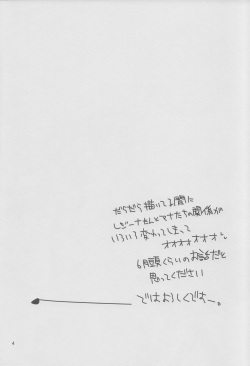 だらだら描いてる間に
レジーナさんとマナたちの関係が
いろいろ変わってしまって
オオオオオオ。
6月頭くらいのお話だと
思ってください
ではよろしくですー。
4